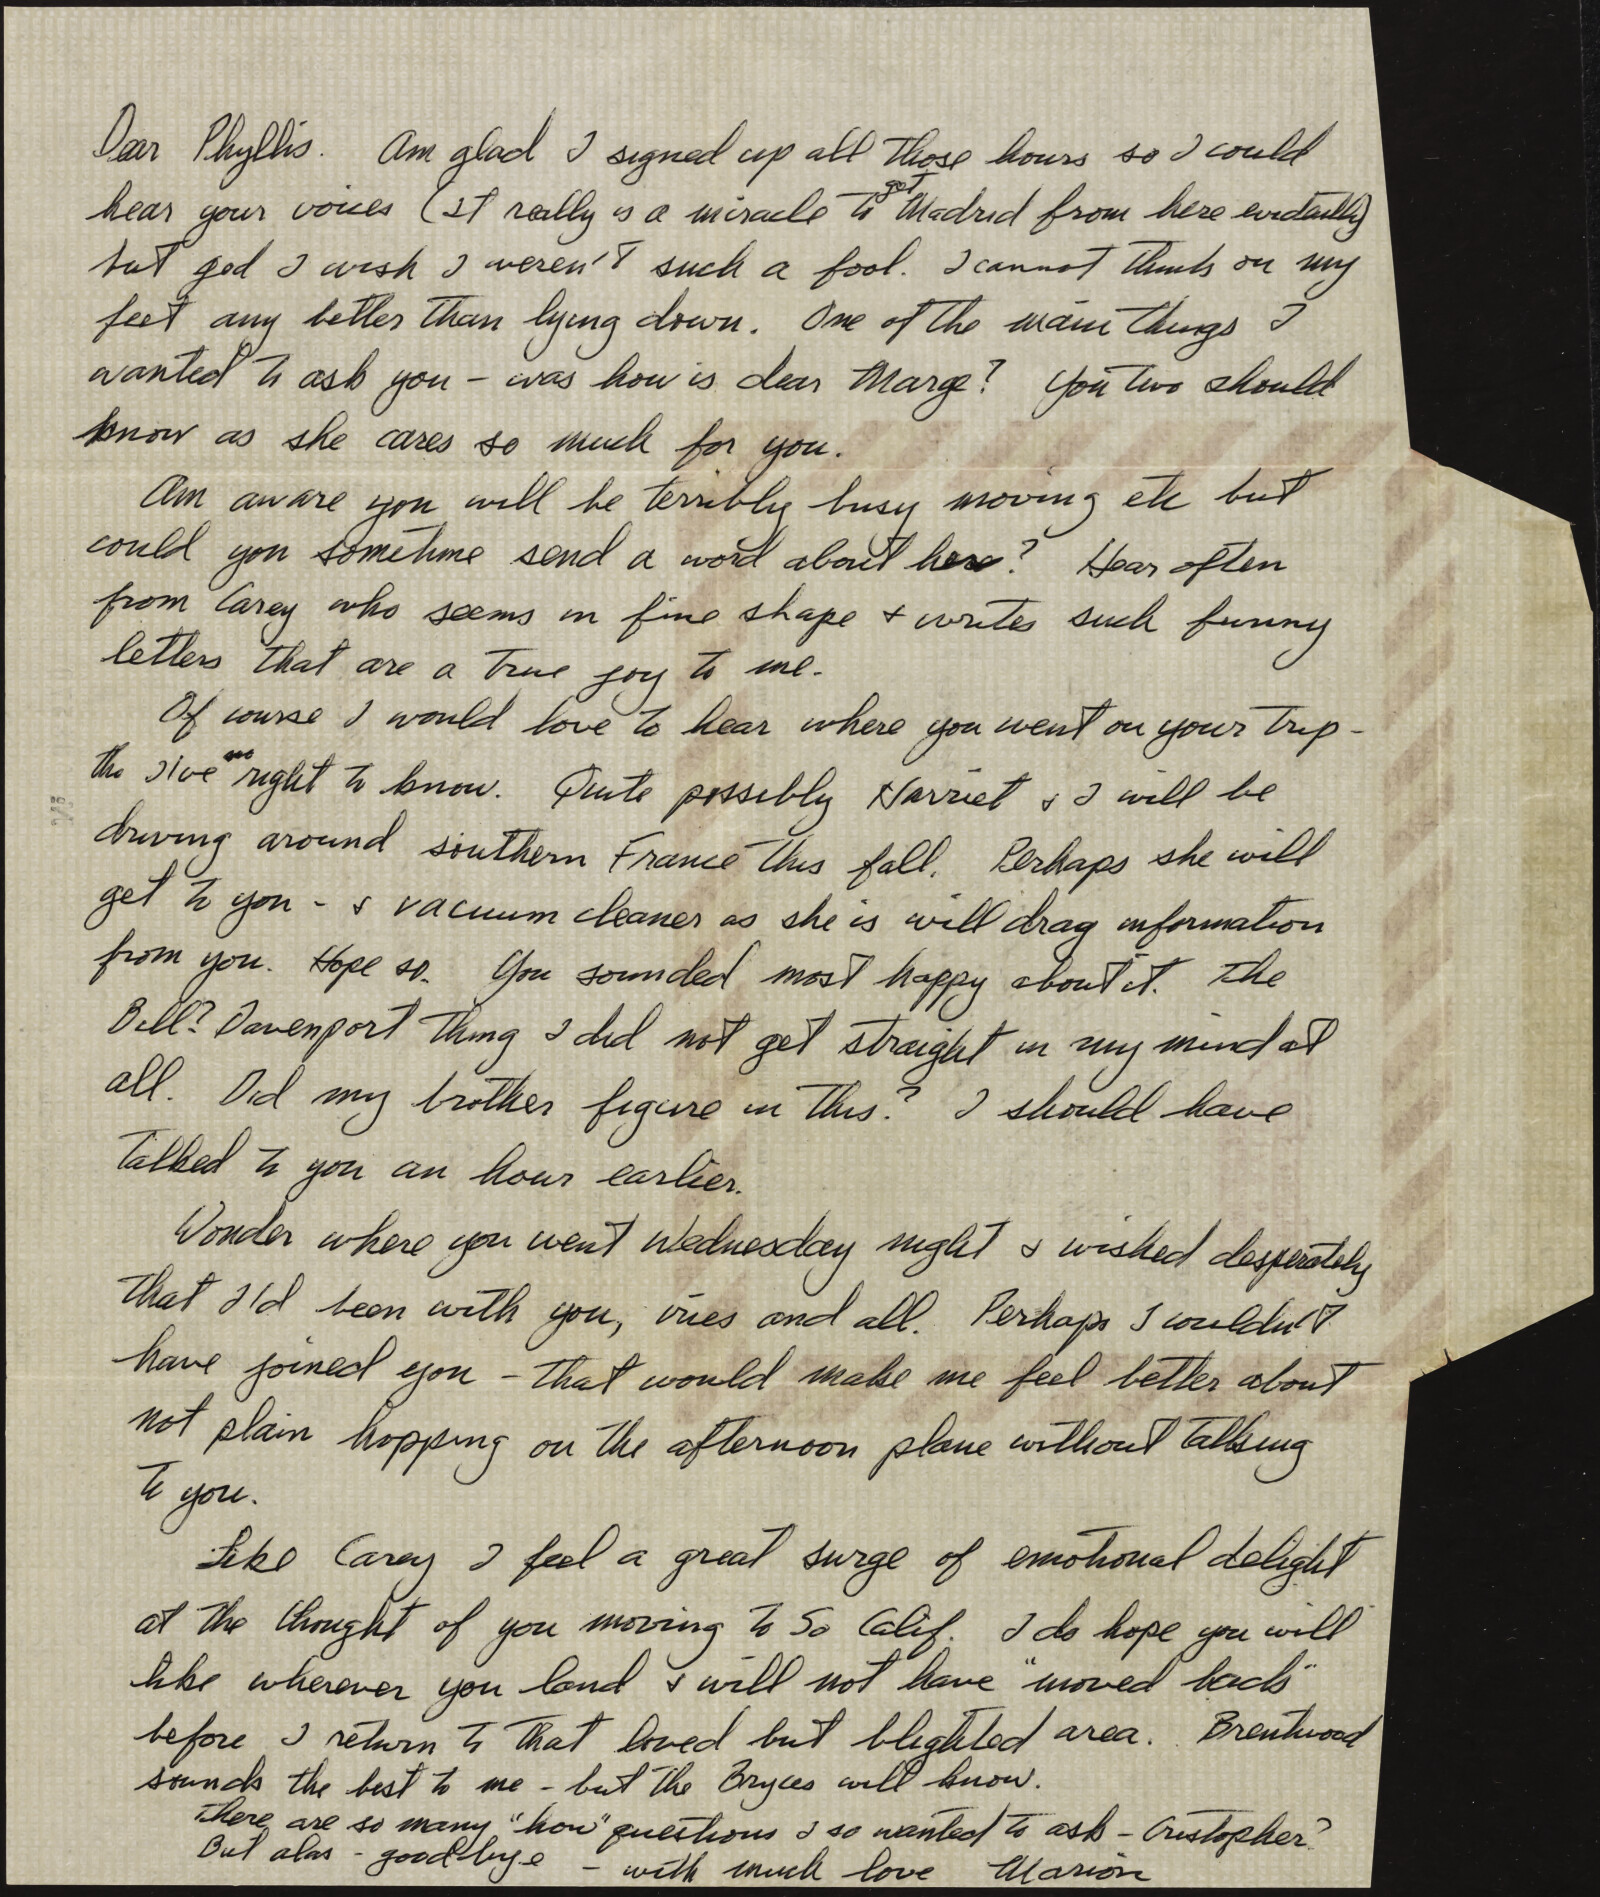 Dear Phyllis. Am glad I signed up all those hours so I could
hear your voices (it really is a miracle to get Madrid from here evidently)
but god I wish I weren't such a fool. I cannot think on my
feet any better than lying down. One of the main things I
wanted to ask you – was how is dear Marge? You two should
know as she cares so much for you.
Am aware you will be terribly busy moving etc but
could you sometime send a word about her? Hear often
from Carey who seems in fine shape & writes such funny
letters that are a true joy to me.
Of course I would love to hear where you went on your trip –
tho I've no right to know. Quite possibly Harriet & I will be
driving around southern France this fall. Perhaps she will
get to you - & vacuum cleaner as she is will drag information
from you. Hope so. You sounded most happy about it. The
Bill? Davenport thing I did not get straight in my mind at
all. Did my brother figure in this? I should have
talked to you an hour earlier.
Wonder where you went Wednesday night & wished desperately
that I'd been with you, and all. Perhaps I wouldn't
have joined you – that would make me feel better about
not plain hopping on the afternoon plane without talking
to you.
Like Carey I feel a great surge of emotional delight
at the thought of you moving to So Calif. I do hope you will
like wherever you land & will not have "moved back"
before I return to that loved but blighted area. Brentwood
sounds the best to me – but the Bryces will know.
There are so many "how" questions I so wanted to ask – Cristopher?
But alas – goodbye – with much love Marion